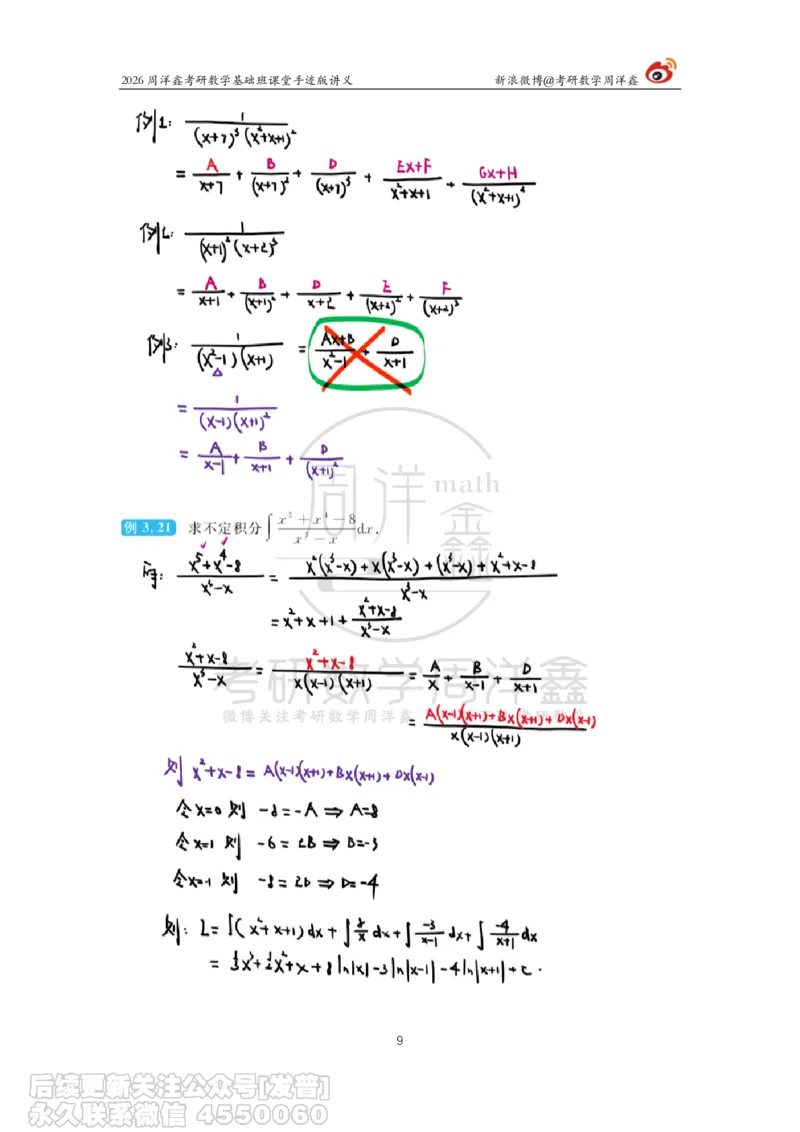 2026 周洋鑫考研数学基础班课堂手迹版讲义 新浪微博@考研数学周洋鑫
例1: 1/((x+7)³(x²+x+1)²)
= A/(x+7) + B/(x+7)² + D/(x+7)³ + (Ex+F)/(x²+x+1) + (Gx+H)/(x²+x+1)²
例2: 1/((x+1)²(x+2)³)
= A/(x+1) + B/(x+1)² + D/(x+2) + E/(x+2)² + F/(x+2)³
例3: 1/((x²-1)(x+1)) = (Ax+B)/(x²-1) + D/(x+1)
△
= 1/((x-1)(x+1)²)
= A/(x-1) + B/(x+1) + D/(x+1)²
周洋鑫 math
例 3.21 求不定积分∫(x⁵+x⁴-8)/(x³-x)dx.
解: (x⁵+x⁴-8)/(x³-x) = (x²(x³-x)+x(x³-x)+(x³-x)+x²+x-8)/(x³-x)
= x²+x+1+(x²+x-8)/(x³-x)
(x²+x-8)/(x³-x) = (x²+x-8)/(x(x-1)(x+1)) = A/x + B/(x-1) + D/(x+1)
考研数学周洋鑫
微博关注考研数学周洋鑫
= (A(x-1)(x+1)+Bx(x+1)+Dx(x-1))/(x(x-1)(x+1))
则 x²+x-8 = A(x-1)(x+1)+Bx(x+1)+Dx(x-1)
令x=0 则 -8=-A ⇒ A=8
令x=1 则 -6=2B ⇒ B=-3
令x=-1 则 -8=2D ⇒ D=-4
则: I=∫(x²+x+1)dx+∫8/x dx+∫-3/(x-1) dx+∫-4/(x+1) dx
= 1/3x³+1/2x²+x+8ln|x|-3ln|x-1|-4ln|x+1|+C.
9
后续更新关注公众号[发普]
永久联系微信 4550060